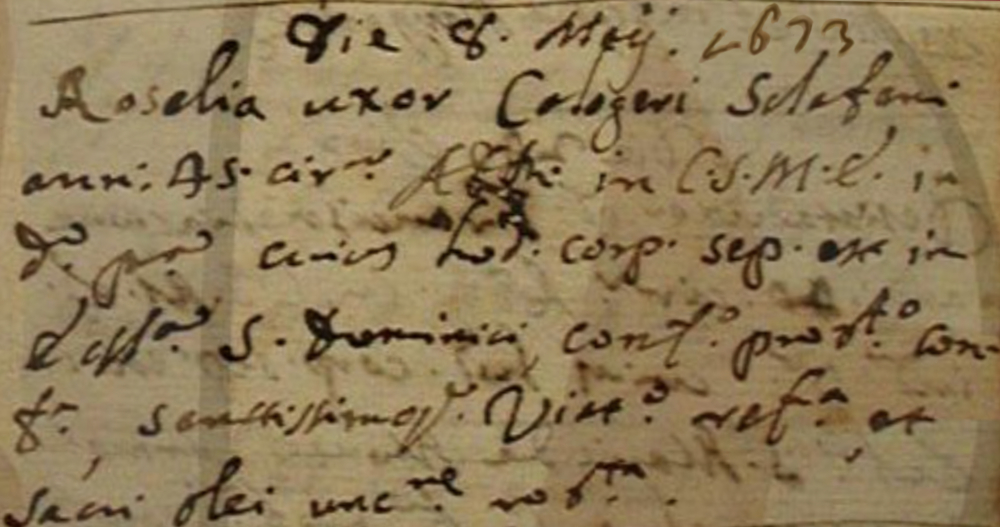 Die 8. Maij. 1673
Rosalia uxor Calogeri Sclafani
ann: 45. cir.ᵃ in C.S.M.E. in
D.ᵒ pᵃ cuius hod. corp. sep. est in
Eccl.ᵃ S. Dominici conf.ᵒ prost.ᵒ con-
f.ᵃ sanctissimoq. Viat.ᵒ ref.ᵃ et
sacri olei unc.ⁿᵉ robᵗᵃ.